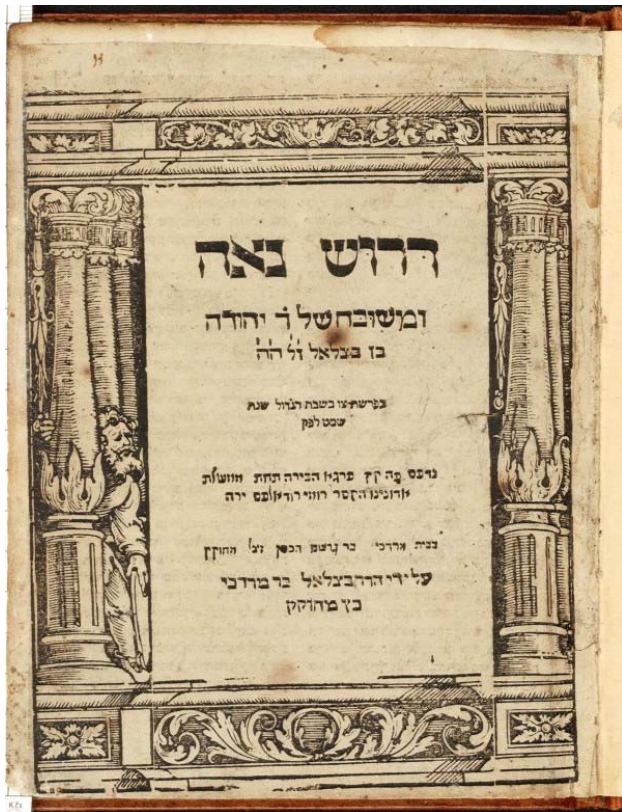 דרוש נאה
ומשובח של ר יהודה
בן בצלאל ז"ל הה'
בפרשת צו בשבת הגדול שנת
שמט לפק
נדפס פה קק פראג הבירה תחת ממשלת
אדונינו הקסר רודאלפס ירה
בבית מרדכי בר גרשום הכהן זצ"ל המחוקק
על ידי הרר בצלאל בר מרדכי
כץ מחוקק